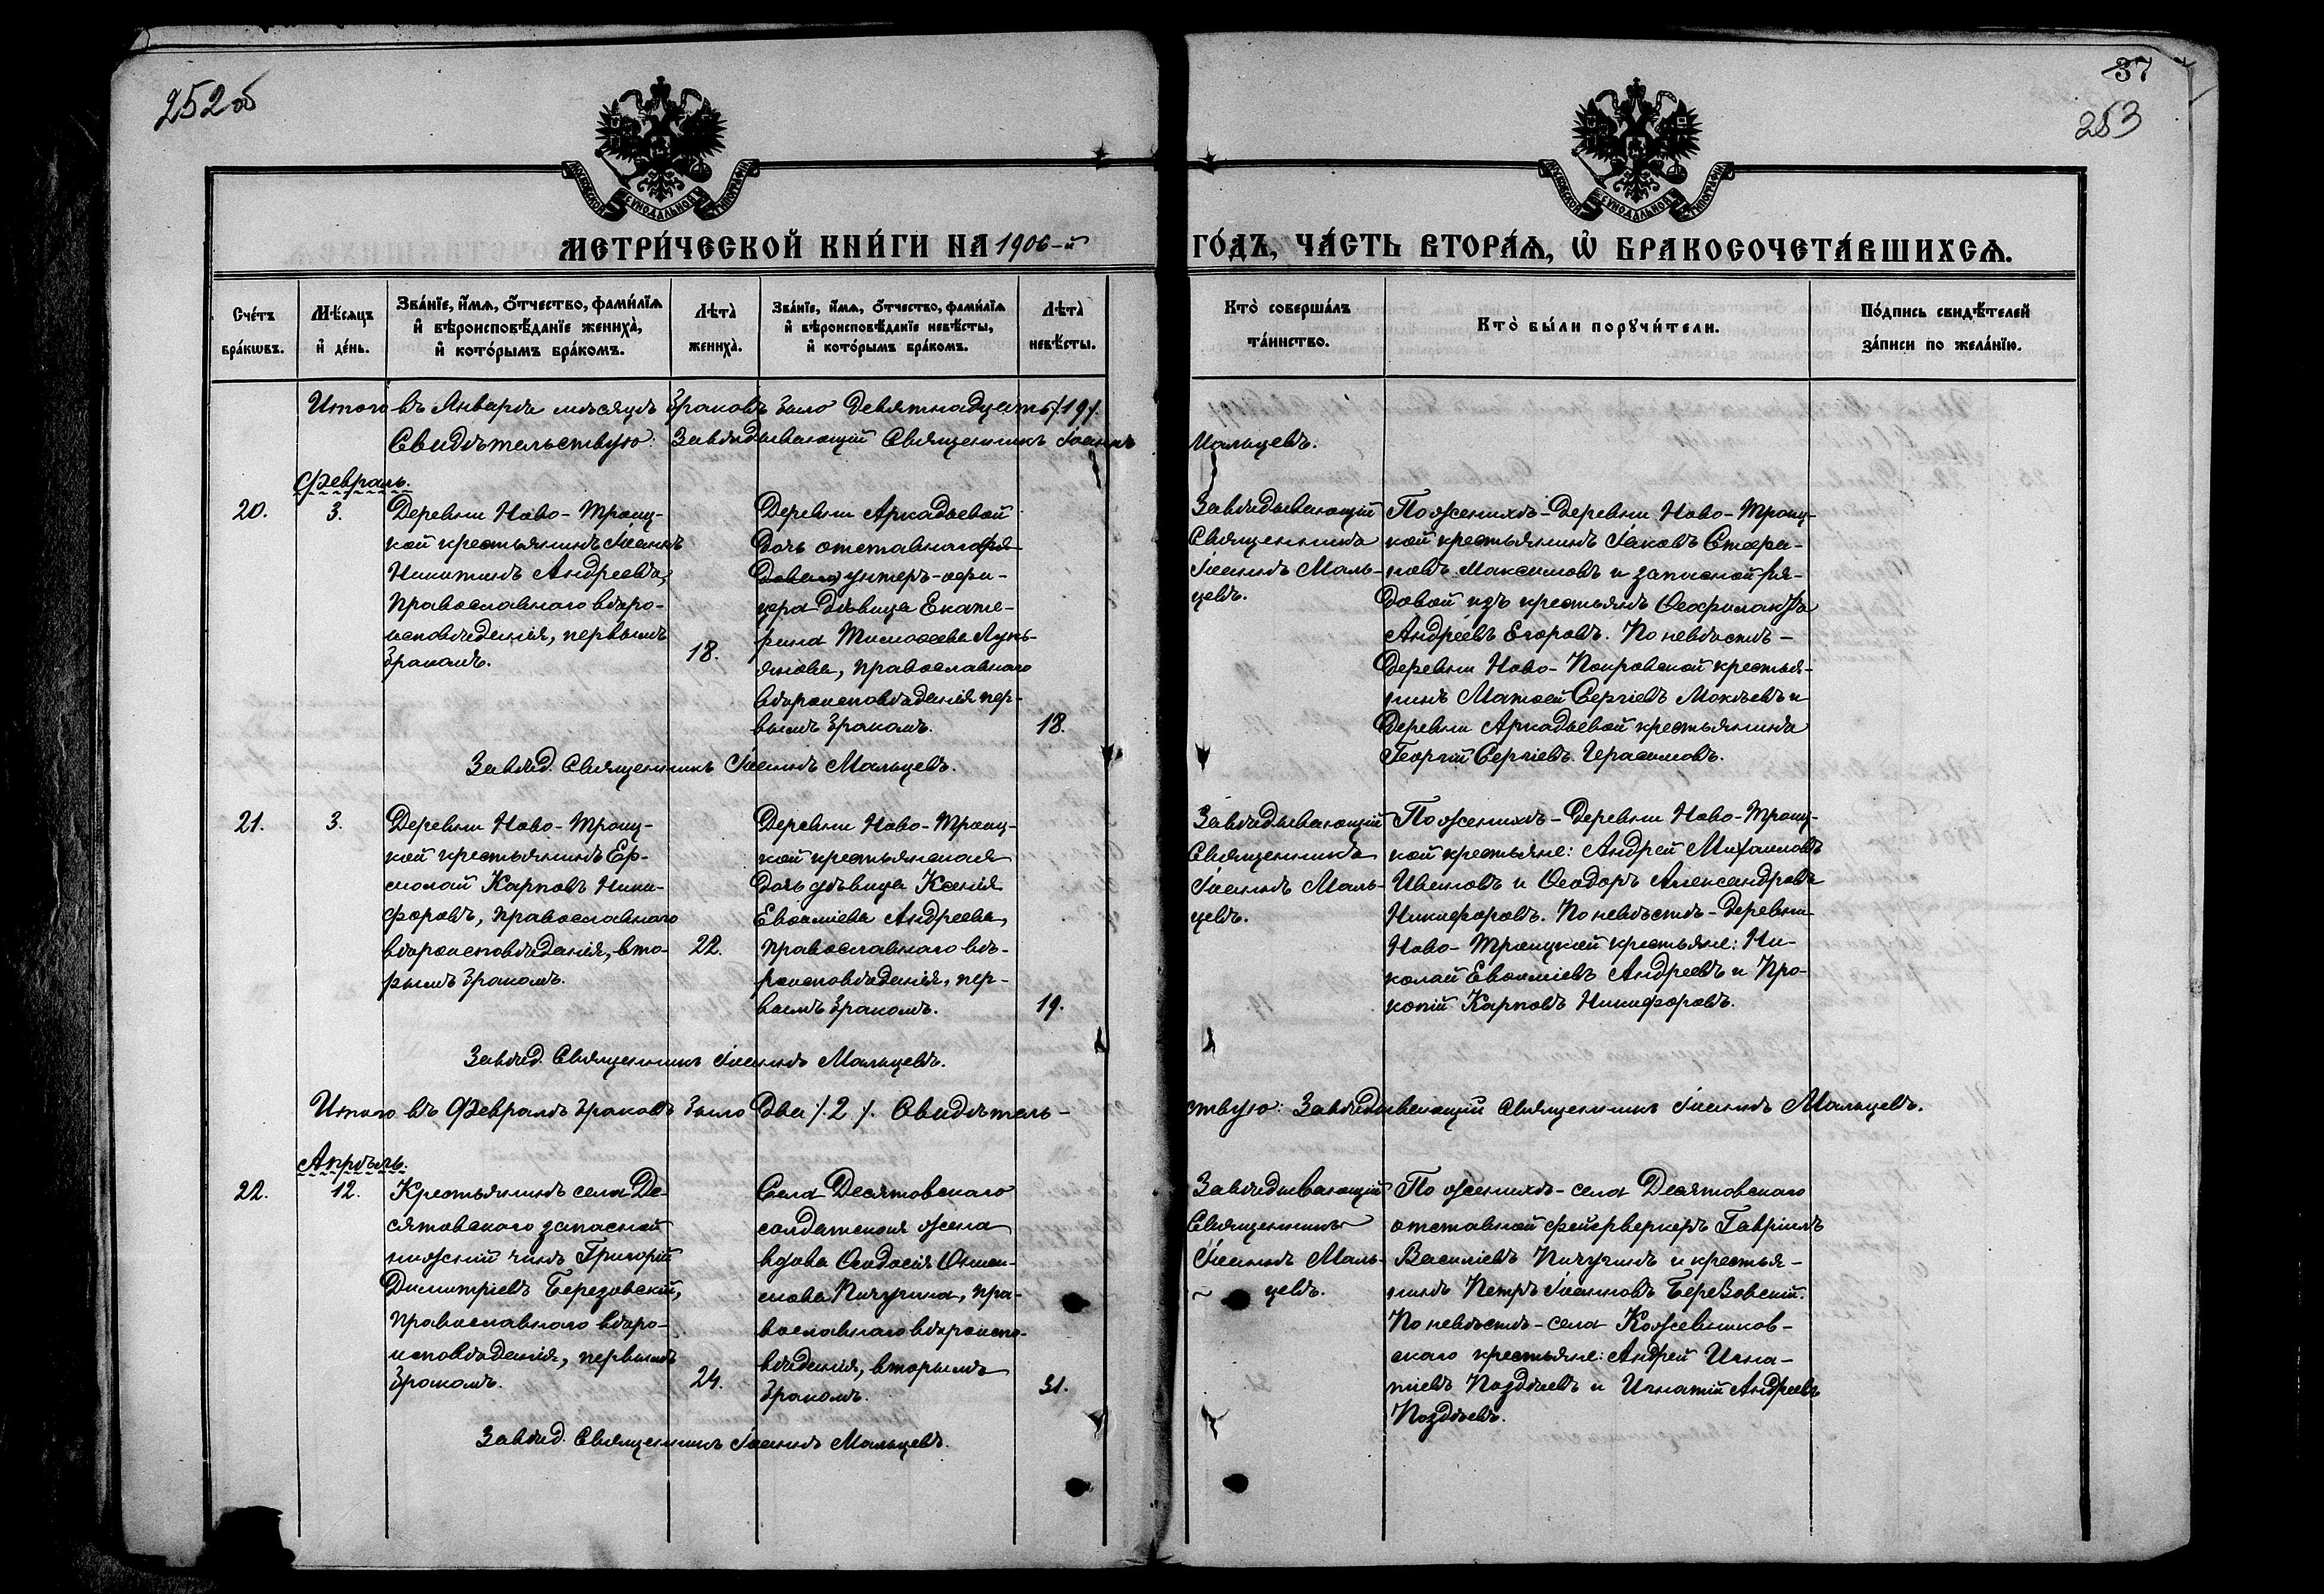 252об
37
253
МОСКОВСКОЙ СѴНОДАЛЬНОЙ ТИПОГРАФІИ
МОСКОВСКОЙ СѴНОДАЛЬНОЙ ТИПОГРАФІИ
МЕТРИ́ЧЕСКОЙ КНИ́ГИ НА 1906-й
ГО́ДЪ, ЧА́СТЬ ВТОРА́Ѧ, Ѡ҆ БРАКОСОЧЕТА́ВШИХСѦ.
Сче́тъ
бра́кѡвъ.
Мѣ́сяцъ
и҆ де́нь.
Зва́нїе, и҆́мѧ, ѻ҆́тчество, фами́лїѧ
и҆ вѣроисповѣ́данїе жениха̀,
и҆ кото́рымъ бра́комъ.
Лѣта̀
жениха̀.
Зва́нїе, и҆́мѧ, ѻ҆́тчество, фами́лїѧ
и҆ вѣроисповѣ́данїе невѣ́сты,
и҆ кото́рымъ бра́комъ.
Лѣта̀
невѣ́сты.
Кто̀ соверша́лъ
та́инство.
Кто̀ бы́ли порꙋчи́тели.
По́дпись свидѣ́телей
за́писи по жела́нїю.
Итого въ Январѣ мѣсяцѣ браковъ было девятнадцать /.19/.
Свидѣтельствую: Завѣдывающій Священникъ Іоаннъ
Мальцевъ.
Февраль.
20.
3.
Деревни Ново-Троиц-
кой крестьянинъ Іоаннъ
Никитинъ Андреевъ,
православнаго вѣро-
исповѣданія, первымъ
бракомъ.
18.
Деревни Аркадьевой
дочь отставного ря-
дового унтеръ-офи-
цера дѣвица Екате-
рина Тимоѳеева Лукь-
янова, православнаго
вѣроисповѣданія пер-
вымъ бракомъ.
18.
Завѣдывающій
Священникъ
Іоаннъ Маль-
цевъ.
По женихѣ - деревни Ново-Троиц-
кой крестьянинъ Іаковъ Стефа-
новъ Максимовъ и запасной ря-
довой изъ крестьянъ Ѳеофилактъ
Андреевъ Егоровъ. По невѣстѣ -
деревни Ново-Покровской крестья-
нинъ Матѳей Сергіевъ Мокѣевъ и
деревни Аркадьевой крестьянинъ
Георгій Сергіевъ Герасимовъ.
Завѣд. Священникъ Іоаннъ Мальцевъ.
21.
3.
Деревни Ново-Троиц-
кой крестьянинъ Ер-
молай Карповъ Ники-
форовъ, православнаго
вѣроисповѣданія, вто-
рымъ бракомъ.
22.
Деревни Ново-Троиц-
кой крестьянская
дочь дѣвица Ксенія
Евѳиміева Андреева,
православнаго вѣ-
роисповѣданія, пер-
вымъ бракомъ.
19.
Завѣдывающій
Священникъ
Іоаннъ Маль-
цевъ.
По женихѣ - деревни Ново-Троиц-
кой крестьяне: Андрей Михаиловъ
Ивановъ и Ѳеодоръ Александровъ
Никифоровъ. По невѣстѣ - деревни
Ново-Троицкой крестьяне: Ни-
колай Евѳиміевъ Андреевъ и Про-
копій Карповъ Никифоровъ.
Завѣд. Священникъ Іоаннъ Мальцевъ.
Итого въ Февралѣ браковъ было два /.2/. Свидѣтель-
ствую: Завѣдывающій Священникъ Іоаннъ Мальцевъ.
Апрѣль.
22.
12.
Крестьянинъ села Де-
сятовскаго запасной
нижній чинъ Григорій
Димитріевъ Березовскій,
православнаго вѣро-
исповѣданія, первымъ
бракомъ.
24.
Села Десятовскаго
солдатская жена
вдова Ѳеодосія
Пичугина, пра-
вославнаго вѣроиспо-
вѣданія, вторымъ
бракомъ.
31.
Завѣдывающій
Священникъ
Іоаннъ Маль-
цевъ.
По женихѣ - села Десятовскаго
отставной фейерверкеръ Гавріилъ
Василіевъ Пичугинъ и крестья-
нинъ Петръ Іоанновъ Березовскій.
По невѣстѣ - села Кожевников-
скаго крестьяне: Андрей Игна-
тіевъ Поздѣевъ и Игнатій Андреевъ
Поздѣевъ.
Завѣд. Священникъ Іоаннъ Мальцевъ.